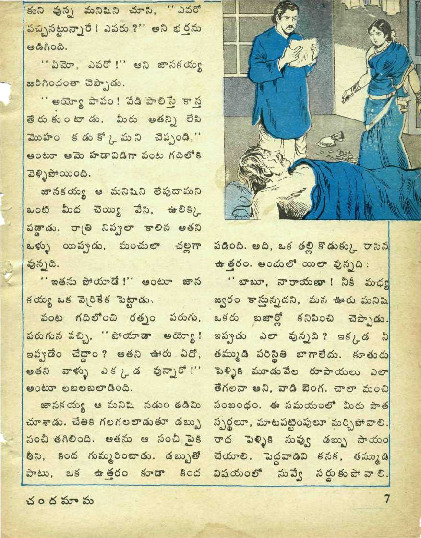 కుని వున్న మనిషిని చూసి, "ఎవరో
వచ్చినట్టున్నారే! ఎవరు?" అని భర్తను
అడిగింది.
"ఏమో, ఎవరో!" అని జానకయ్య
జరిగిందంతా చెప్పాడు.
"అయ్యో పాపం! వేడి పాలిస్తే కాస్త
తేరుకుంటాడు. మీరు అతన్ని లేపి
మొహం కడుక్కోమని చెప్పండి."
అంటూ ఆమె హడావిడిగా వంట గదిలోకి
వెళ్ళిపోయింది.
జానకయ్య ఆ మనిషిని లేపుదామని
ఒంటి మీద చెయ్యి వేసి, ఉలిక్కి
పడ్డాడు. రాత్రి నిప్పులా కాలిన అతని
ఒళ్ళు యిప్పుడు, మంచులా చల్లగా
వున్నది.
"ఇతను పోయాడే!" అంటూ జాన
కయ్య ఒక వెర్రికేక పెట్టాడు.
వంట గదిలోంచి రత్నం పరుగు,
పరుగున వచ్చి, "పోయాడా అయ్యో!
ఇప్పుడేం చేద్దాం? అతని ఊరు ఏదో,
అతని వాళ్ళు ఎక్కడ వున్నారో!"
అంటూ లబలబలాడింది.
జానకయ్య ఆ మనిషి నడుం తడిమి
చూశాడు. చేతికి గలగలలాడుతూ డబ్బు
సంచీ తగిలింది. అతను ఆ సంచీ పైకి
తీసి, కింద గుమ్మరించాడు. డబ్బుతో
పాటు, ఒక ఉత్తరం కూడా కింద
పడింది. అది, ఒక తల్లి కొడుక్కు రాసిన
ఉత్తరం. అందులో యిలా వున్నది:
"బాబూ, నారాయణా! నీకీ మధ్య
జ్వరం కాస్తున్నదని, మన ఊరు మనిషి
ఒకరు బజార్లో కనిపించి చెప్పాడు.
ఇప్పుడు ఎలా వున్నది? ఇక్కడ నీ
తమ్ముడి పరిస్థితి బాగాలేదు. కూతురు
పెళ్ళికి మూడువేల రూపాయలు ఎలా
తేగలనా అని, వాడి బెంగ. చాలా మంచి
సంబంధం. ఈ సమయంలో మీరు పాత
స్పర్థలూ, మాటపట్టింపులూ మర్చిపోవాలి.
రాధ పెళ్ళికి నువ్వు డబ్బు సాయం
చేయాలి. పెద్దవాడివి కనక, తమ్ముడి
విషయంలో నువ్వే సర్దుకుపోవాలి.
చందమామ
7